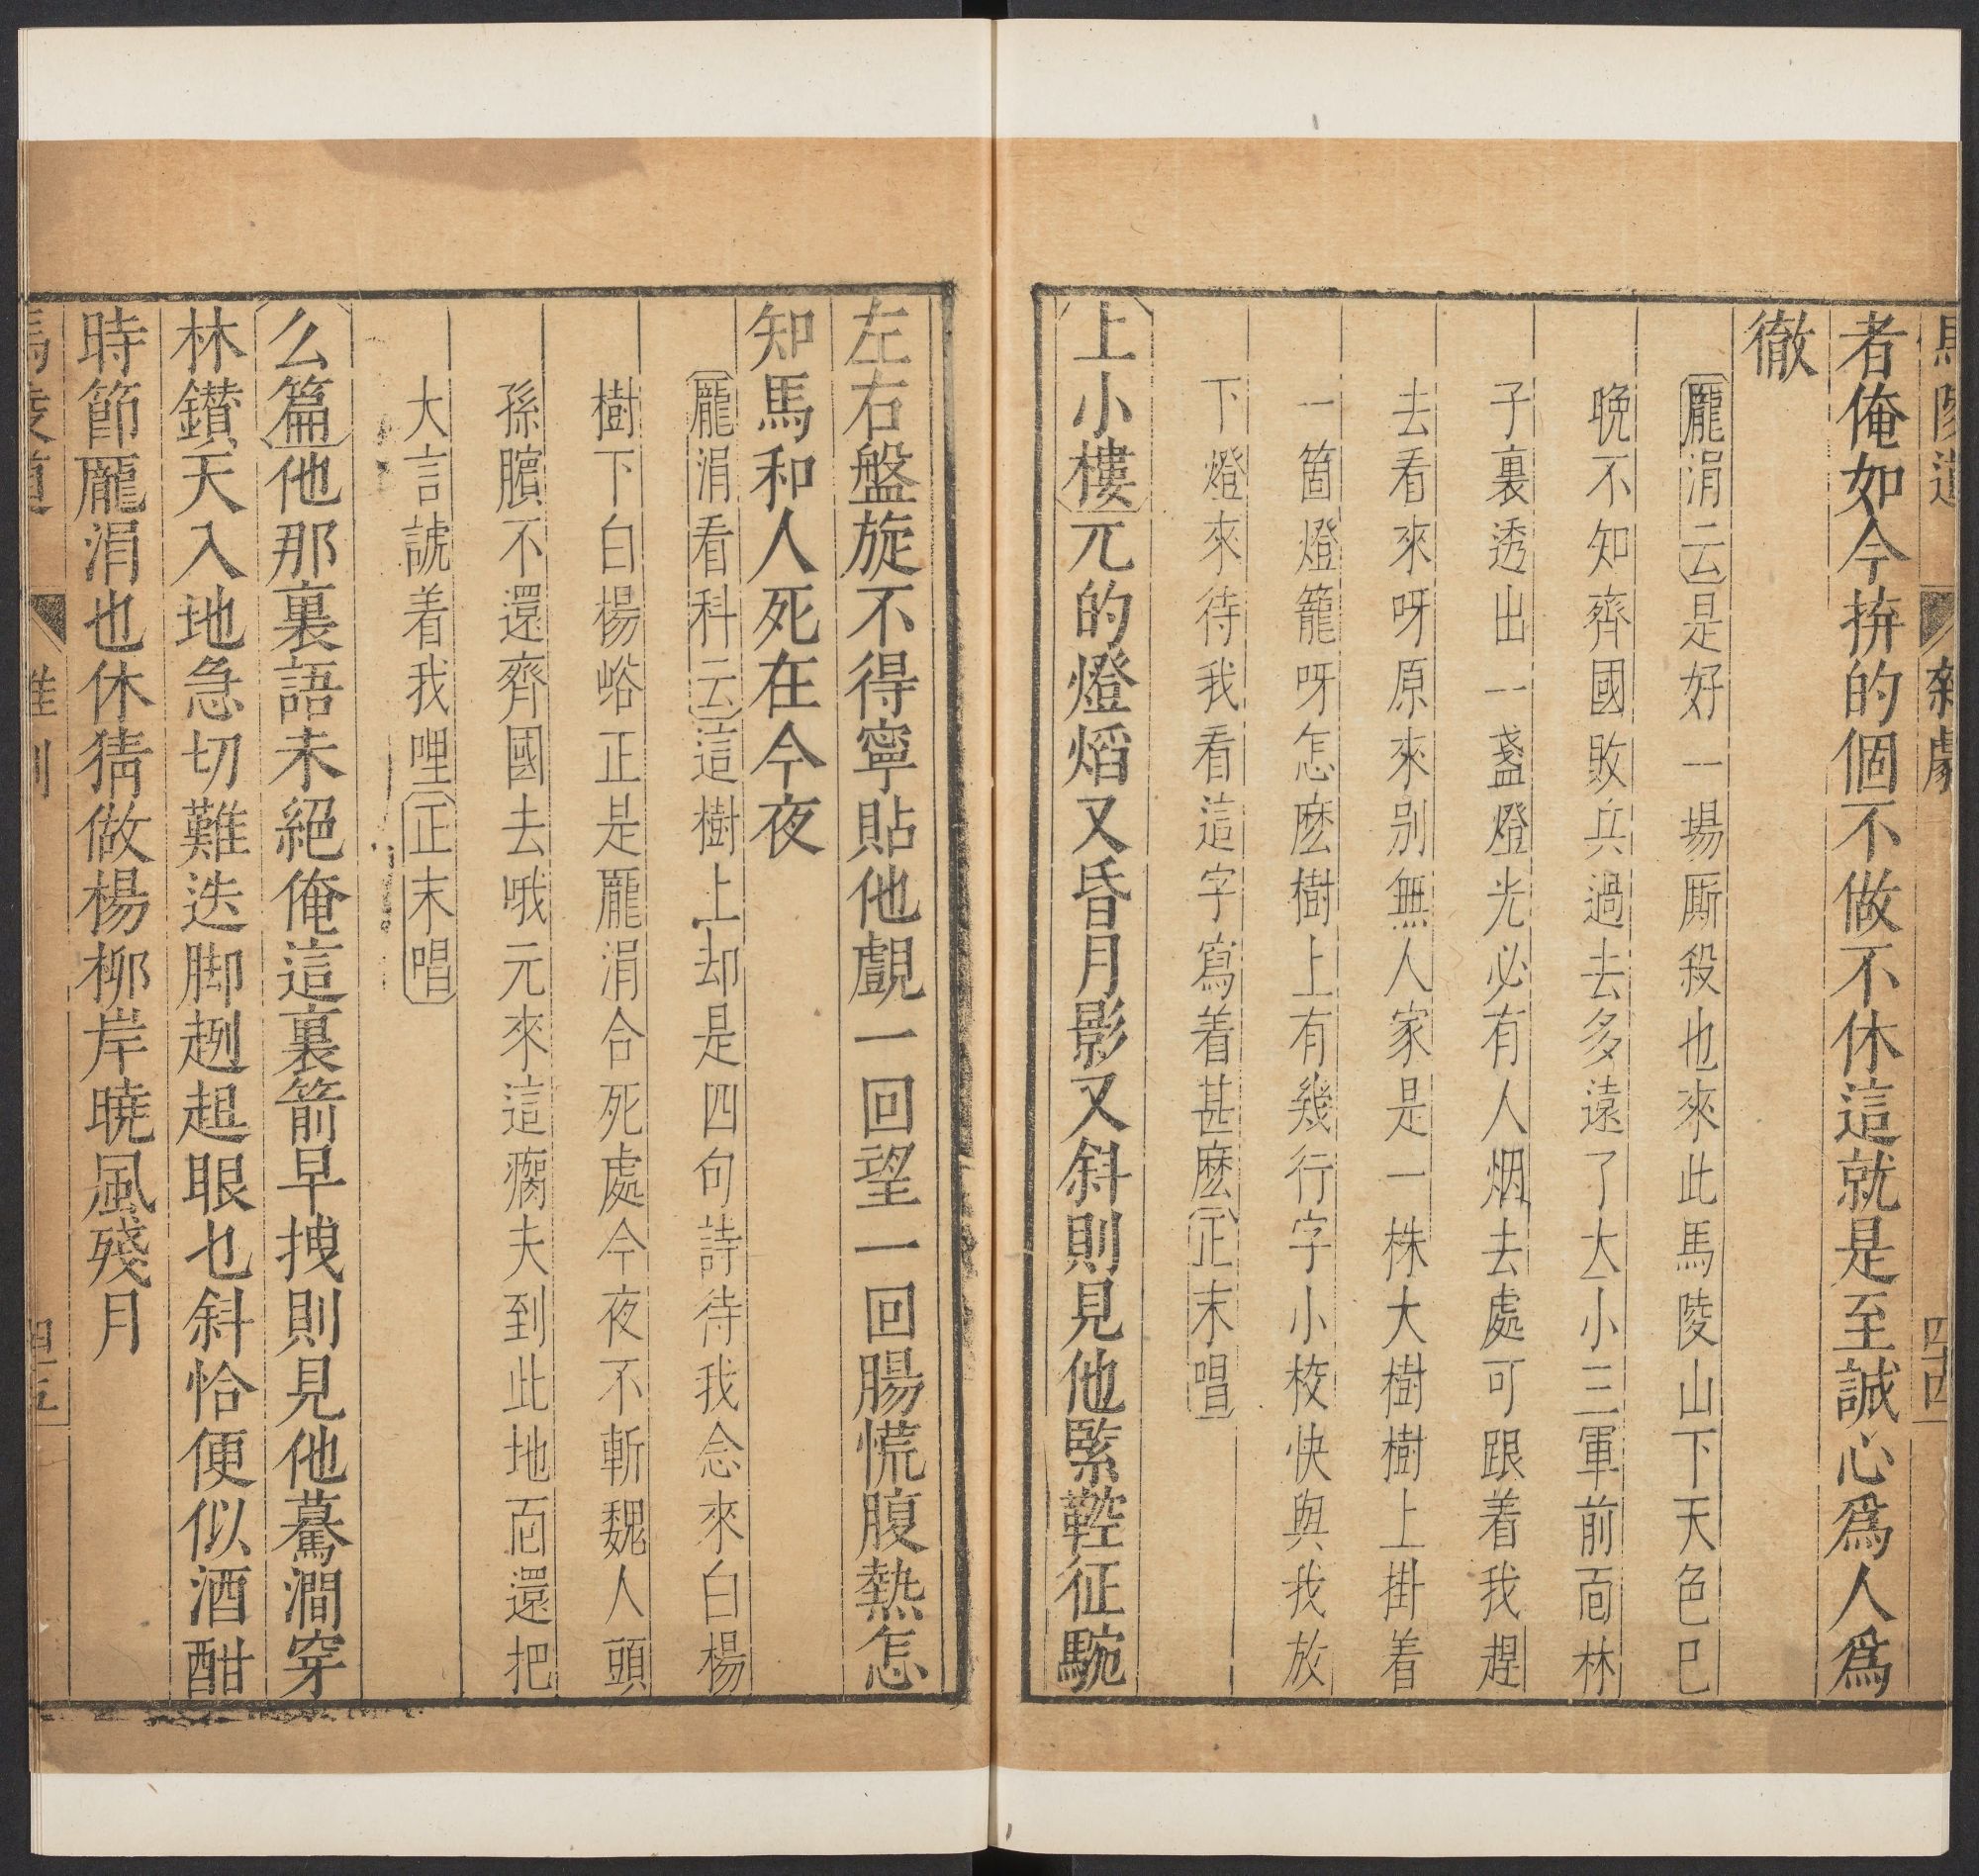 馬陵道 雜劇 四四
者俺如今拚的個不做不休這就是至誠心爲人爲
徹
龎涓云是好一場厮殺也來此馬陵山下天色巳
晚不知齊國敗兵過去多遠了大小三軍前靣林
子裏透出一盞燈光必有人烟去處可跟着我趕
去看來呀原來别無人家是一株大樹樹上掛着
一箇燈籠呀怎麽樹上有幾行字小校快與我放
下燈來待我看這字寫着甚麽正末唱
上小樓兀的燈熖又昏月影又斜則見他緊鞚征䮗
左右盤旋不得寧貼他覰一回望一回腸慌腹熱怎
知馬和人死在今夜
龎涓看科云這樹上却是四句詩待我念來白楊
樹下白楊峪正是龎涓合死處今夜不斬魏人頭
孫臏不還齊國去哦元來這瘸夫到此地靣還把
大言諕着我哩正末唱
么篇他那裏語未絕俺這裏箭早拽則見他驀澗穿
林鑚天入地急切難迭脚趔趄眼乜斜恰便似酒酣
時節龎涓也休猜做楊柳岸曉風殘月
馬陵道 雜劇 四五